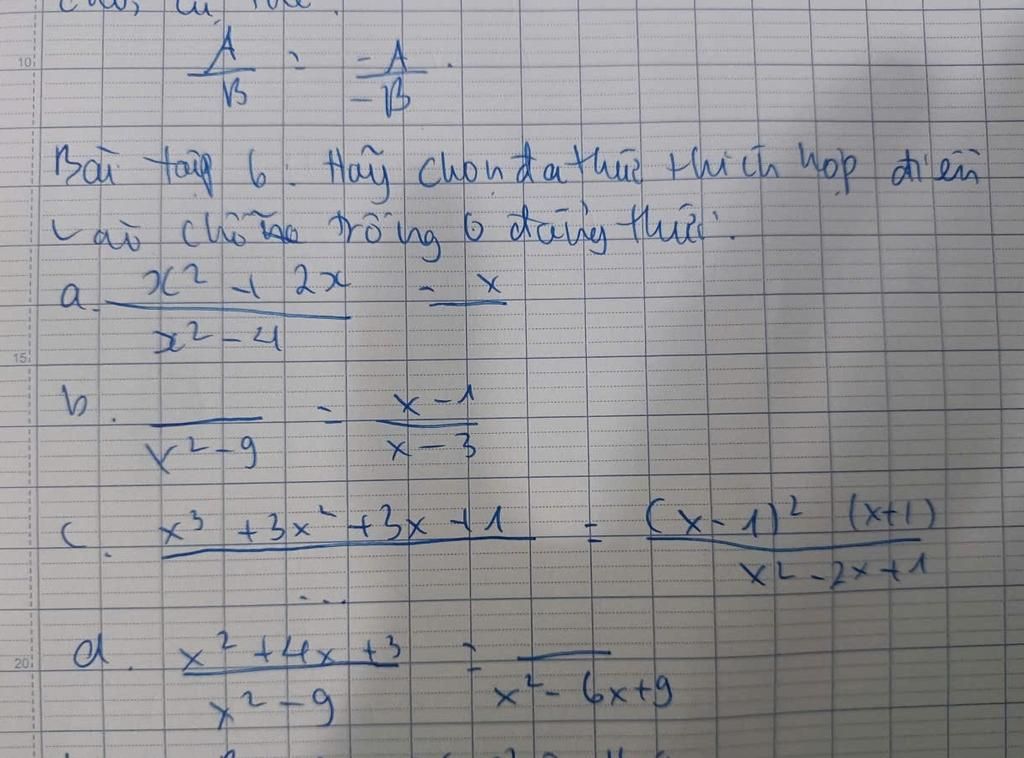 A/B = -A/-B.
Bài tập 6. Hãy chọn đa thức thích hợp điền
vào chỗ trống ở đẳng thức:
a. (x² + 2x)/(x² - 4) = x/
b. /(x² - 9) = (x - 1)/(x - 3)
c. (x³ + 3x² + 3x + 1)/... = ((x - 1)² (x+1))/(x² - 2x + 1)
d. (x² + 4x + 3)/(x² - 9) = /(x² - 6x + 9)
10
15
20